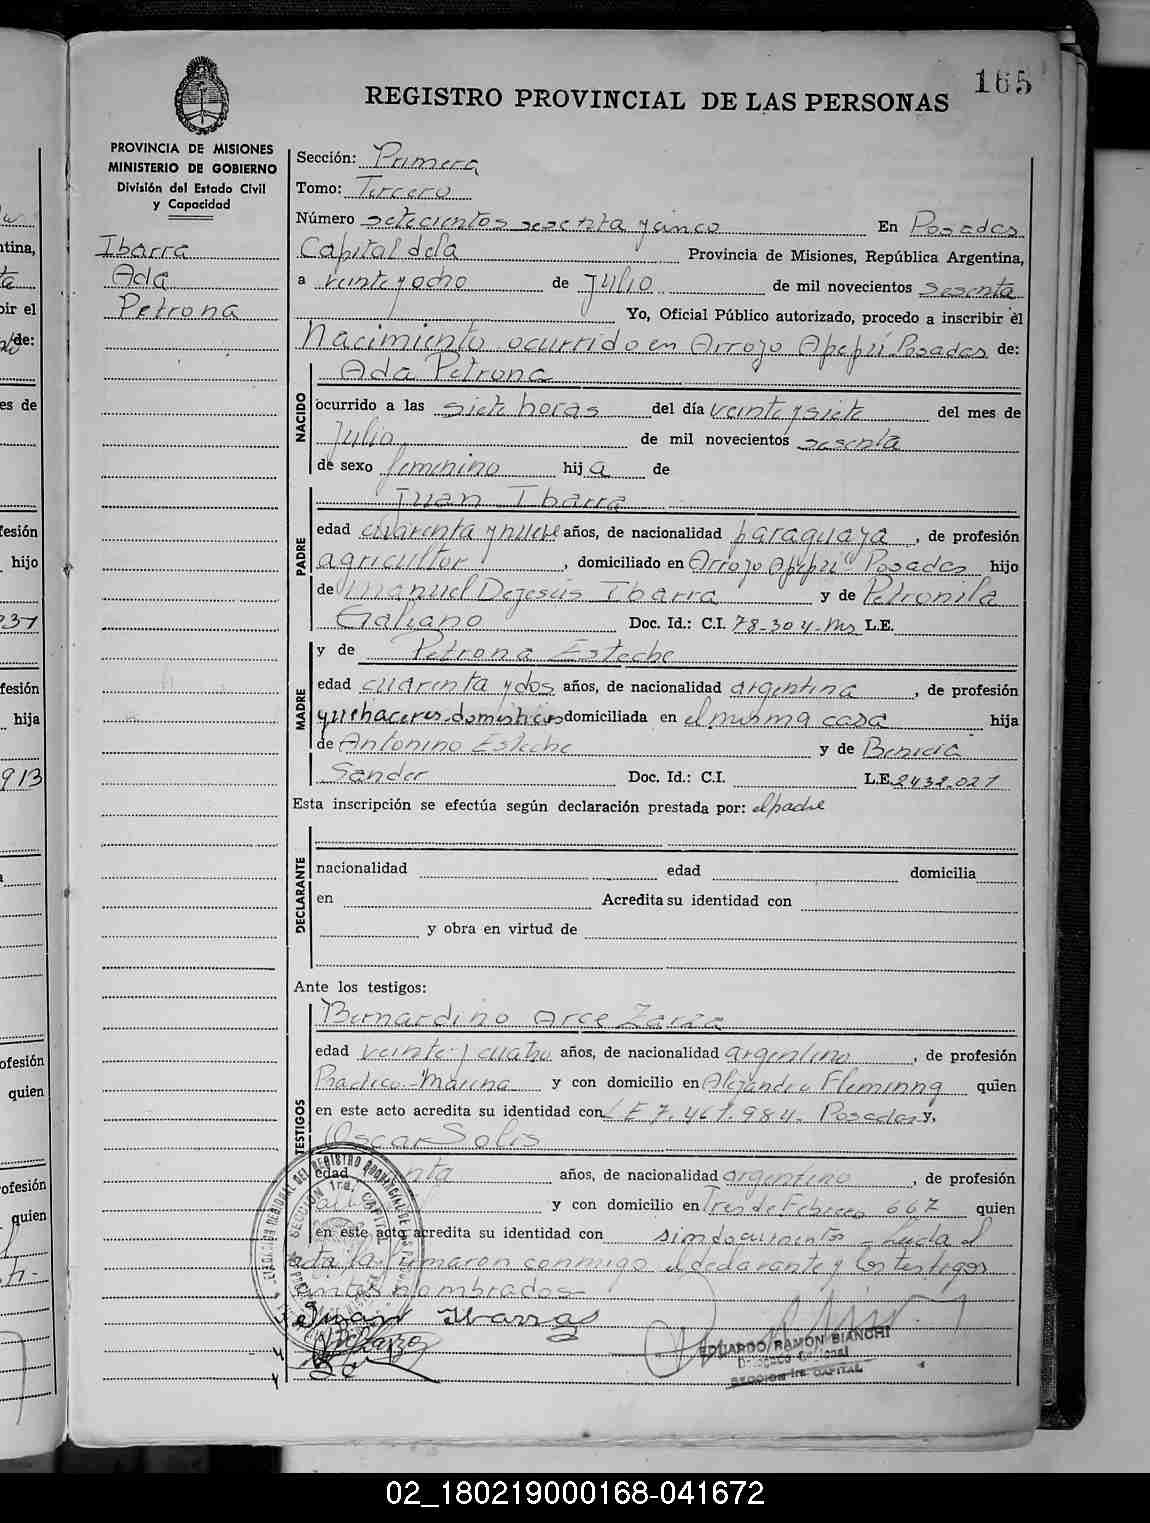 165
REGISTRO PROVINCIAL DE LAS PERSONAS
PROVINCIA DE MISIONES
MINISTERIO DE GOBIERNO
División del Estado Civil
y Capacidad
Ibarra
Ada
Petrona
Sección: Primera
Tomo: Tercero
Número setecientos sesenta y cinco En Posadas
Capital de la Provincia de Misiones, República Argentina,
a veinte y ocho de Julio de mil novecientos sesenta
Yo, Oficial Público autorizado, procedo a inscribir el
Nacimiento ocurrido en Arroyo Apepú Posadas de:
NACIDO
Ada Petrona
ocurrido a las siete horas del día veinte y siete del mes de
Julio de mil novecientos sesenta
de sexo femenino hij a de
PADRE
Juan Ibarra
edad cuarenta y nueve años, de nacionalidad paraguaya, de profesión
agricultor, domiciliado en Arroyo Apepú Posadas hijo
de Manuel Dejesús Ibarra y de Petronila
Galiano Doc. Id.: C.I. 78-304-Ms L.E.
MADRE
y de Petrona Esteche
edad cuarenta y dos años, de nacionalidad argentina, de profesión
quehaceres domésticos domiciliada en el misma casa hija
de Antonino Esteche y de Benicia
Sander Doc. Id.: C.I. L.E. 2432.027
Esta inscripción se efectúa según declaración prestada por: el padre
DECLARANTE
nacionalidad edad domicilia
en Acredita su identidad con
y obra en virtud de
Ante los testigos:
TESTIGOS
Bernardino Arce Zarza
edad veinte y cuatro años, de nacionalidad argentino, de profesión
Practico-Marina y con domicilio en Alejandro Fleminng quien
en este acto acredita su identidad con L E 7.461.984. Posadas y,
Oscar Solis
edad años, de nacionalidad argentino, de profesión
y con domicilio en Tres de Febrero 667 quien
en este acto acredita su identidad con sin documentos - leída el
acta la firmaron conmigo el declarante y los testigos
antes nombrados-
Juan Ibarra
EDUARDO RAMON BIANCHI
SECCION 1ra. CAPITAL
02_180219000168-041672